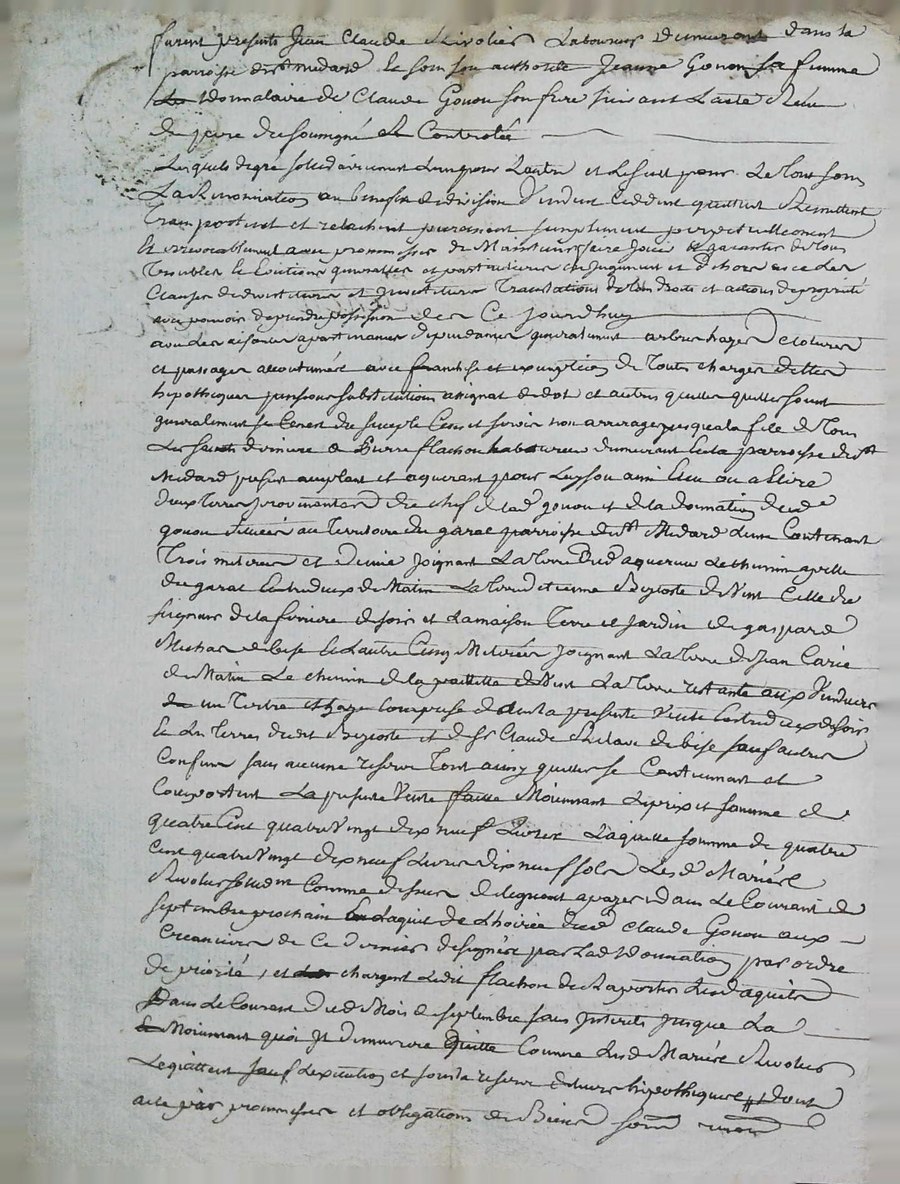 furent presents Jean Claude Rivolier Laboureur demeurant dans la
parroisse de st medard et sous son authorité Jeanne Gonon sa femme
donnataire de Claude Gonon son frere suivant l'acte Reçu
de jcure du soussigné et Controlée
Lesquels de gré solidairement l'un pour l'autre et le seul pour Le tout sous
La Renonciation au benefice de division vendent ceddent quittent Remettent
transportent et relachent purement simplement perpetuellement
et irrevocablement avec promesse de Maintenir faire Jouir et garantir de tous
troubles et evictions generalles et particulieres en Jugement et dehors avec les
Clauses de devestiture et Investiture translations de tous droits et actions de proprieté
avec pouvoir de prendre possession des Ce jourdhuy
avec les aisances apartenances dependances generalement arbres hayes clotures
et passages accoutumés avec franchise et exemption de toutes charges dettes
hipotheques pensions substitutions assignat de dot et autres quelles quelles soient
generalement se Cens du simple Cens et servis non arrerages jusqu'a la fete de tous
Les saints derniere a Pierre flachon Laboureur demeurant en la parroisse de st
Medard present acceptant et aquerant pour Luy son ami Elu ou a Elire
deux terres provenantes du chef de lad. gonon et de la donnation dud.
gonon situées au territoire du garat parroisse de st Medard L'une Contenant
trois meterées et demie Joignant La terre dud. aquereur Le chemin apellé
du garat entre deux de Matin La terre d'Etienne Beyssote de Vent Celle du
seigneur de la foriniere de soir et La maison terre et Jardin de gaspard
de bise et L'autre Cinq Meterées Joignant La terre de Jean Carie
de Matin Le chemin de la de Vent La terre restante aux Vendeurs
un tertre et haye comprise dans la presente Vente entre deux de soir
et les terres dudit Beyssote et de sr Claude de bise sauf autres
Confins sans aucune reserve Tout ainsy quelles se Contiennent et
Comportent La presente Vente faitte Moiennant Le prix et somme de
quatre Cent quatre Vingt dix neuf Livres Laquelle somme de quatre
Cent quatre Vingt dix neuf Livres dix neuf sols Lesd. Mariés
Rivolier solidmt Comme dessus deleguent a payer dans Le Courant de
septembre prochain En Laquit de L'hoirie dud. Claude Gonon aux
Creanciers de Ce dernier designés par Lad. donnation par ordre
de priorité, et chargent Ledit flachon de Raporter Lesd. aquits
Dans Le Courent dud. Mois de septembre sans Interets Jusque La
Moiennant quoi Il demeurera Quitte Comme Lesd. Mariés Rivolier
Le quittent sauf L'execution et sous la reserve de leurs hipotheques dont
acte par promesses et obligations de Biens